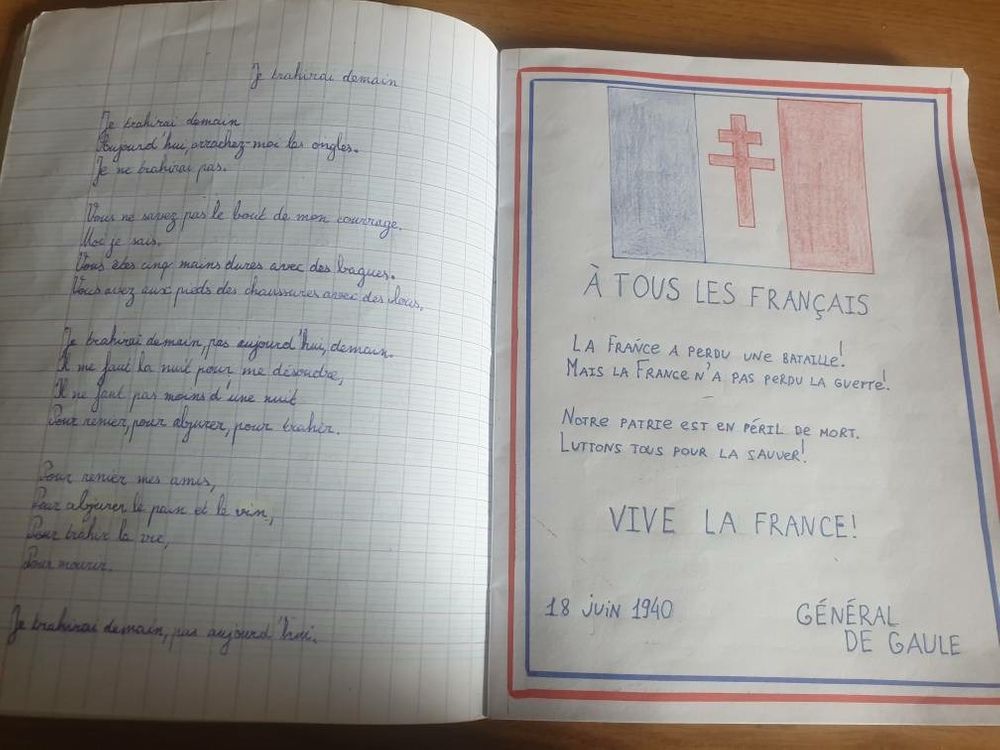 Je trahirai demain
Je trahirai demain
Aujourd'hui, arrachez-moi les ongles.
Je ne trahirai pas.
Vous ne savez pas le bout de mon courrage.
Moi je sais.
Vous êtes cinq mains dures avec des bagues.
Vous avez aux pieds des chaussures avec des clous.
Je trahirai demain, pas aujourd'hui, demain.
Il me faut la nuit pour me résoudre,
Il ne faut pas moins d'une nuit
Pour renier, pour abjurer, pour trahir.
Pour renier mes amis,
Pour abjurer le pain et le vin,
Pour trahir la vie,
Pour mourir.
Je trahirai demain, pas aujourd'hui.
À TOUS LES FRANÇAIS
LA FRANCE A PERDU UNE BATAILLE!
MAIS LA FRANCE N'A PAS PERDU LA GUERRE!
NOTRE PATRIE EST EN PÉRIL DE MORT.
LUTTONS TOUS POUR LA SAUVER!
VIVE LA FRANCE!
18 juin 1940
GÉNÉRAL
DE GAULE